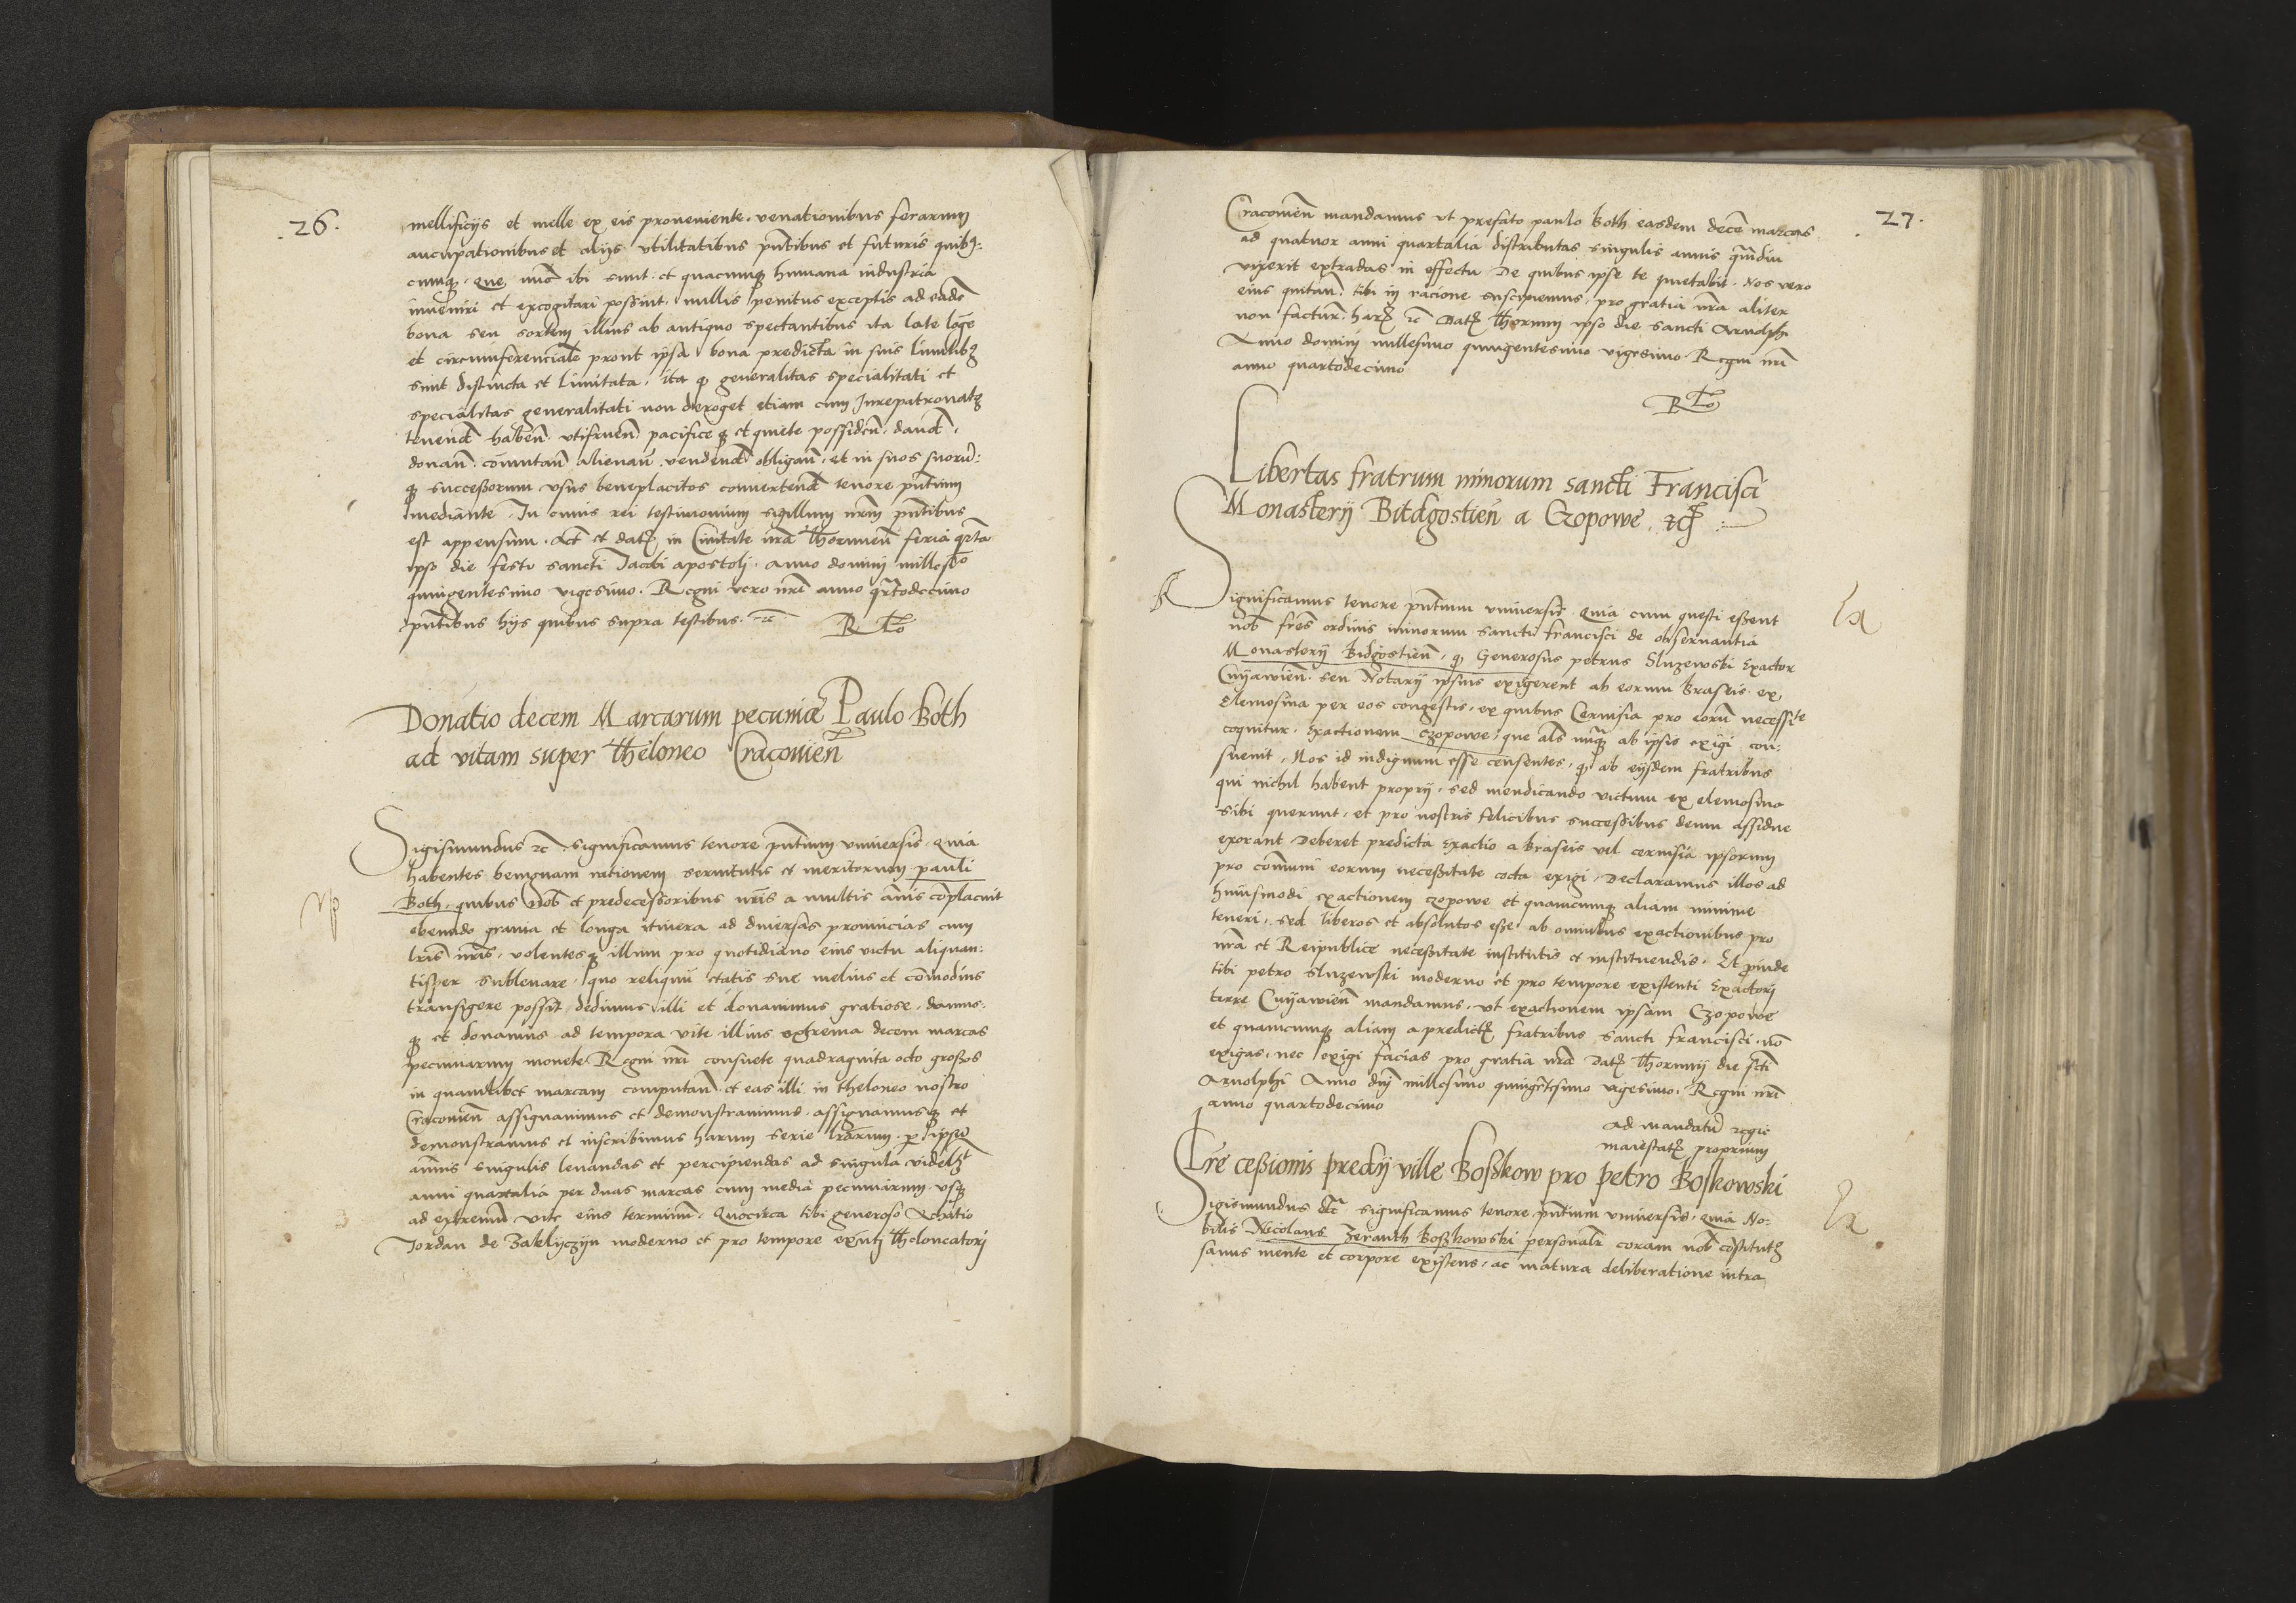 .26.
mellificijs et melle ex eis proueniente. venationibus ferarum
aucupationibus et alijs vtilitatibus pntibus et futuris quibus:
cunqz. que nunc ibi sunt. et quacunqz humana industria
inueniri et excogitari possint. nullis penitus exceptis ad eadē
bona seu sortem illius ab antiquo spectantibus ita late lōge
et circumferencialē prout ipsa bona predicta in suis limitibz
sunt distincta et limitata. ita qz generalitas specialitati et
specialitas generalitati non deroget etiam cum Jurepatronatz
tenend haben̄ vtifruen̄ pacifice qz et quiete possiden̄. dand.
donan̄. cōmutan̄ alienan̄. vendend obligan̄. et in suos suorū:
qz successorum vsus beneplacitos conuertend tenore pntium
mediante. In cuius rei testimonium sigillum nrm pntibus
est appensum. Act et datz in Ciuitate nra Thorunien̄ feria qrta
ipso die festi sancti Jacobi apostolj. anno dominj millesīo
quingentesimo vigesimo. Regni vero nrī anno qrtodecimo
pntibus hijs quibus supra testibus. rc R Tō
Donatio decem Marcarum pecuniæ Paulo Both
ad vitam super Theloneo Cracouien̄
Sigismundus rc. significamus tenore pntium vniuersis. quia
habentes benignam rationem seruitutis et meritorum pauli
Both. quibus nob et predecessoribus nrīs a multis annis cōplacuit
obeundo grauia et longa itinera ad diuersas prouincias cum
lrīs nrīs. volentes qz illum pro quotidiano eius victu aliquan:
tisper subleuare. quo reliquū etatis sue melius et cōmodius
transigere possit dedimus illi et donauimus gratiose. damus:
qz et donamus ad tempora vite illius extrema decem marcas
pecuniarum monete Regni nrī consuete quadraginta octo grossos
in quamlibet marcam computan̄. et eas illi in theloneo nostro
Cracouien̄ assignauimus et demonstrauimus. assignamusqz et
demonstramus et inscribimus harum serie lrarum. p ipsū
annis singulis leuandas et percipiendas ad singula videlzt
anni quartalia per duas marcas cum media pecuniarum. vsqz
ad extremū vite eius terminū. Quocirca tibi generoso Achatio
Jordan de Zakliyczyn moderno et pro tempore exn̄tj Theloneatorj
27.
Cracouien̄ mandamus vt prefato paulo Both easdem decē marcas
ad quatuor anni quartalia distributas singulis annis qmdiu
vixerit extradas in effectu De quibus ipse te quietabit. Nos vero
eius quitan̄. tibi in racione suscipiemus. pro gratia nra aliter
non factur. harz rc Datz Thorunij ipso die sancti Arnolphi
Anno dominj millesimo quingentesimo vigesimo Regni nrī
anno quartodecimo
R Tō
Libertas fratrum minorum sancti Francisci
Monasterij Bitdgostien̄ a Czopowe rc
Significamus tenore pntium vniuersis quia cum questi essent
nob frēs ordinis minorum sancti francisci de obseruantia
Monasterij Bidgostien̄. qz Generosus petrus Sluzewski Exactor
Cuyawien̄. seu Notarij ipsius exigerent ab eorum braseis ex
elemosina per eos congestis. ex quibus Ceruisia pro eorū necessite
coquitur. Exactionem czopowe. que als nunqz ab ipsis exigi con:
sueuit. Nos id indignum esse censentes. qz ab eijsdem fratribus
qui nichil habent proprij. sed mendicando victum ex elemosina
sibi querunt. et pro nostris felicibus successibus deum assidue
exorant Deberet predicta Exactio a braseis vel ceruisia ipsorum
pro cōmuni eorum necessitate cocta exigi. Declaramus illos ad
huiusmodi exactionem czopowe et quamcumqz aliam minime
teneri. sed liberos et absolutos esse ab omnibus exactionibus pro
nra et Reipublice necessitate institutis et instituendis. Et proinde
tibi petro Sluzewski moderno et pro tempore existenti Exactorj
terre Cuyawien̄ mandamus. vt exactionem ipsam Czopowe
et quamcumqz aliam a predictz fratribus sancti francisci. nō
exigas. nec exigi facias pro gratia nra Datz Thorunij die sctī
Arnolphi Anno dnj millesimo quingētesimo vigesimo. Regni nrī
anno quartodecimo
Ad mandatū regie
maiestatz proprium
Lrē cessionis predij ville Bosskow pro petro Boskowski
Sigismundus etc significamus tenore pntium vniuersis. quia No:
bilis Nicolaus Zeranth Bosskowski personalr coram nob cōstitutz
sanus mente et corpore existens. ac matura deliberatione intra